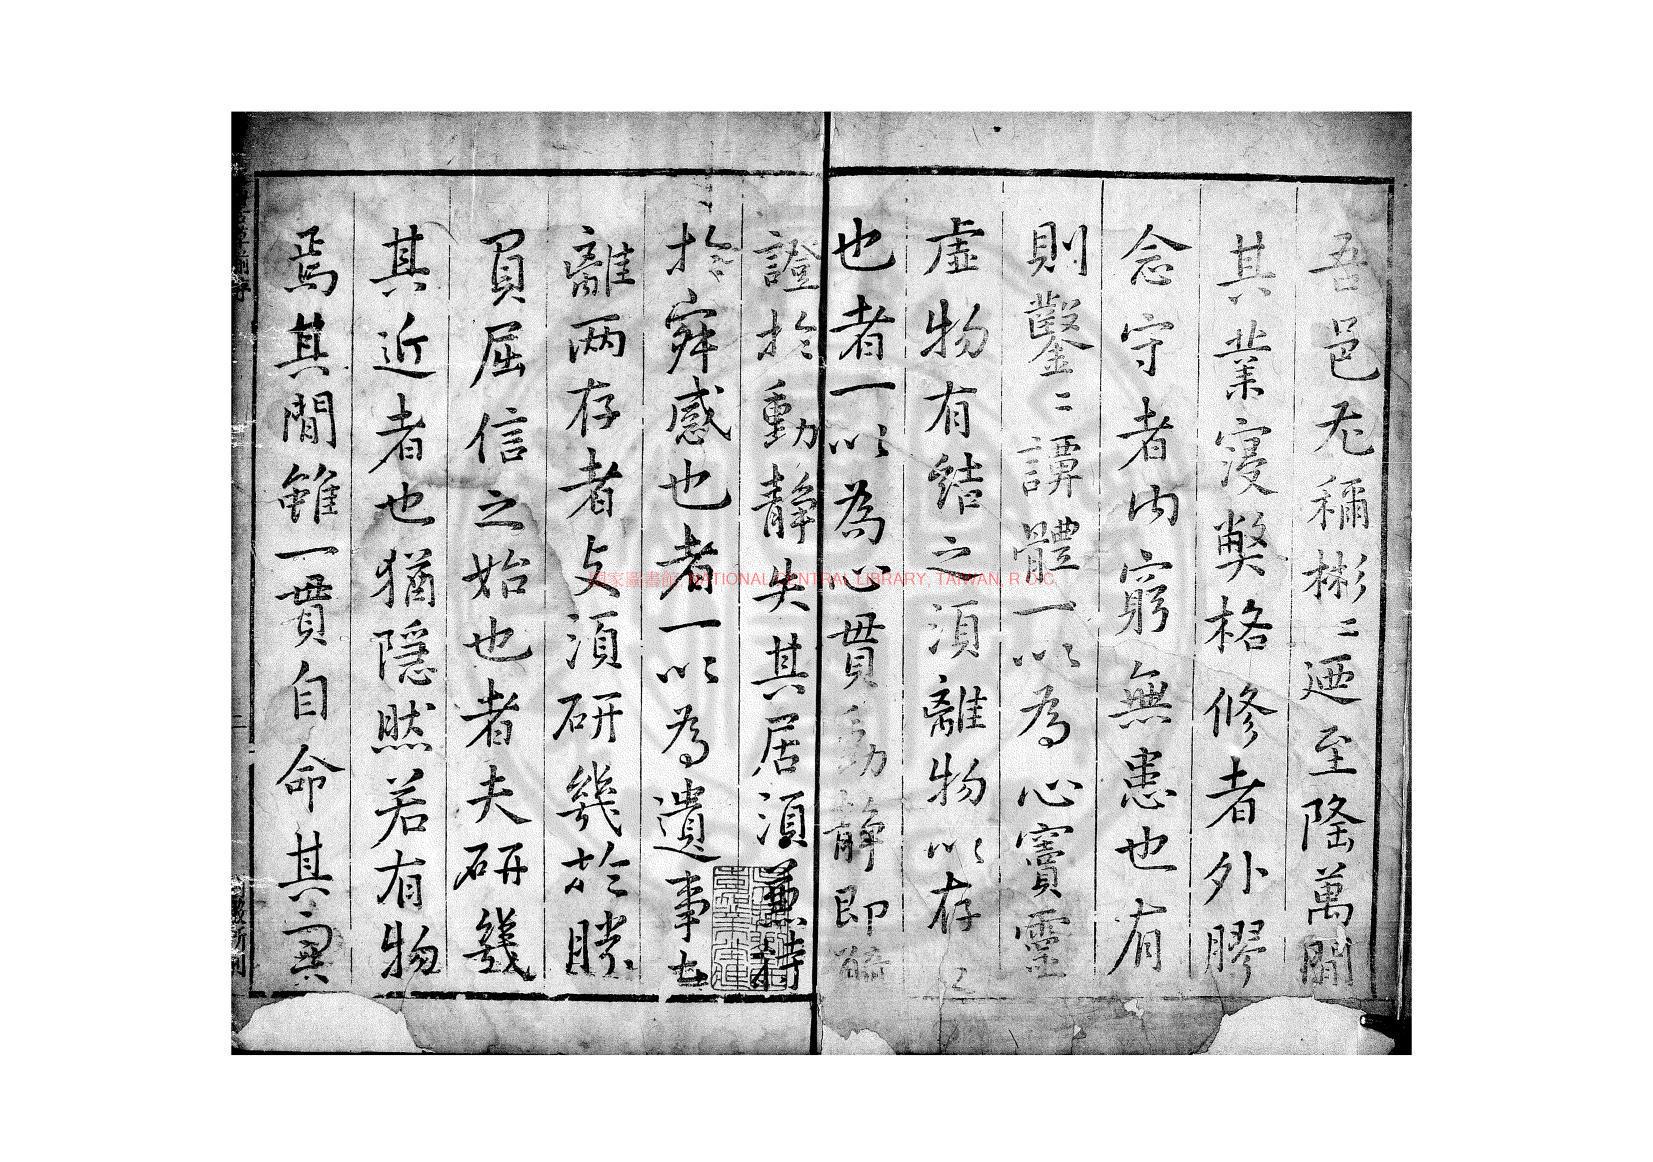 吾邑尤稱彬〻迺至隆萬間
其業寖獘格修者外膠
念守者內窮無患也有
則鑿〻譚體一以為心竅靈
虛物有結之湏離物以存
也者一以為心貫動静即
證於動静失其居湏兼持
於寂感也者一以為遺事
離两存者攴湏研幾於勝
負屈信之始也者夫研幾
其近者也猶隱然若有物
焉其間雖一貫自命其實
國家圖書館 NATIONAL CENTRAL LIBRARY, TAIWAN, R.O.C.